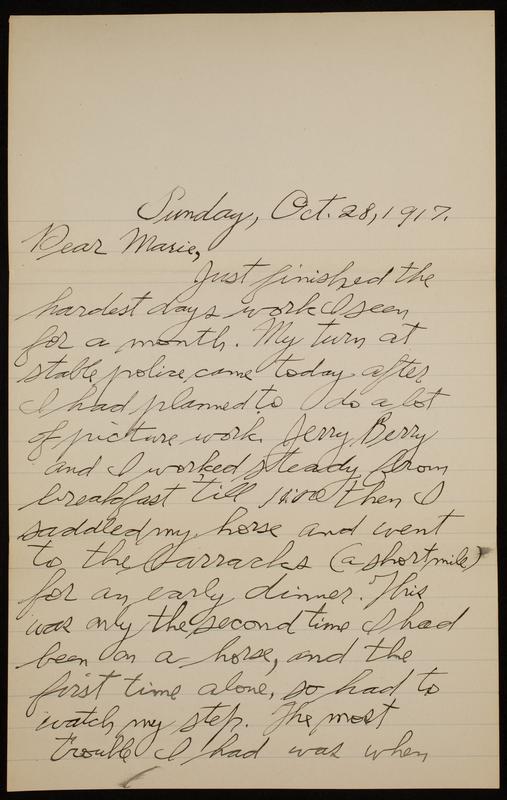 Sunday, Oct. 28, 1917.
Dear Marie,
Just finished the
hardest days work I seen
for a month. My turn at
stable police came today after
I had planned to do a lot
of picture work. Jerry Berry
and I worked steady from
breakfast till 11:00 then I
saddled my horse and went
to the barracks (a short mile)
for an early dinner. This
was only the second time I had
been on a horse, and the
first time alone, so had to
watch my step. The most
trouble I had was when